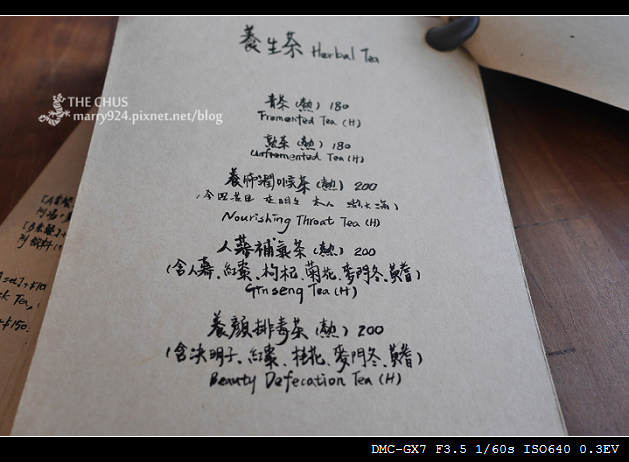 養生茶 Herbal Tea
THE CHUS
marry924.pixnet.net/blog
青茶(熱) 180
Fremented Tea (H)
熟茶(熱) 180
Unfremented Tea (H)
養肺潤喉茶(熱) 200
Nourishing Throat Tea (H)
人蔘補氣茶(熱) 200
(含人蔘、紅棗、枸杞、菊花、麥門冬、黃耆)
Ginseng Tea (H)
養顏排毒茶(熱) 200
(含決明子、紅棗、桂花、麥門冬、黃耆)
Beauty Defecation Tea (H)
DMC-GX7 F3.5 1/60s ISO640 0.3EV